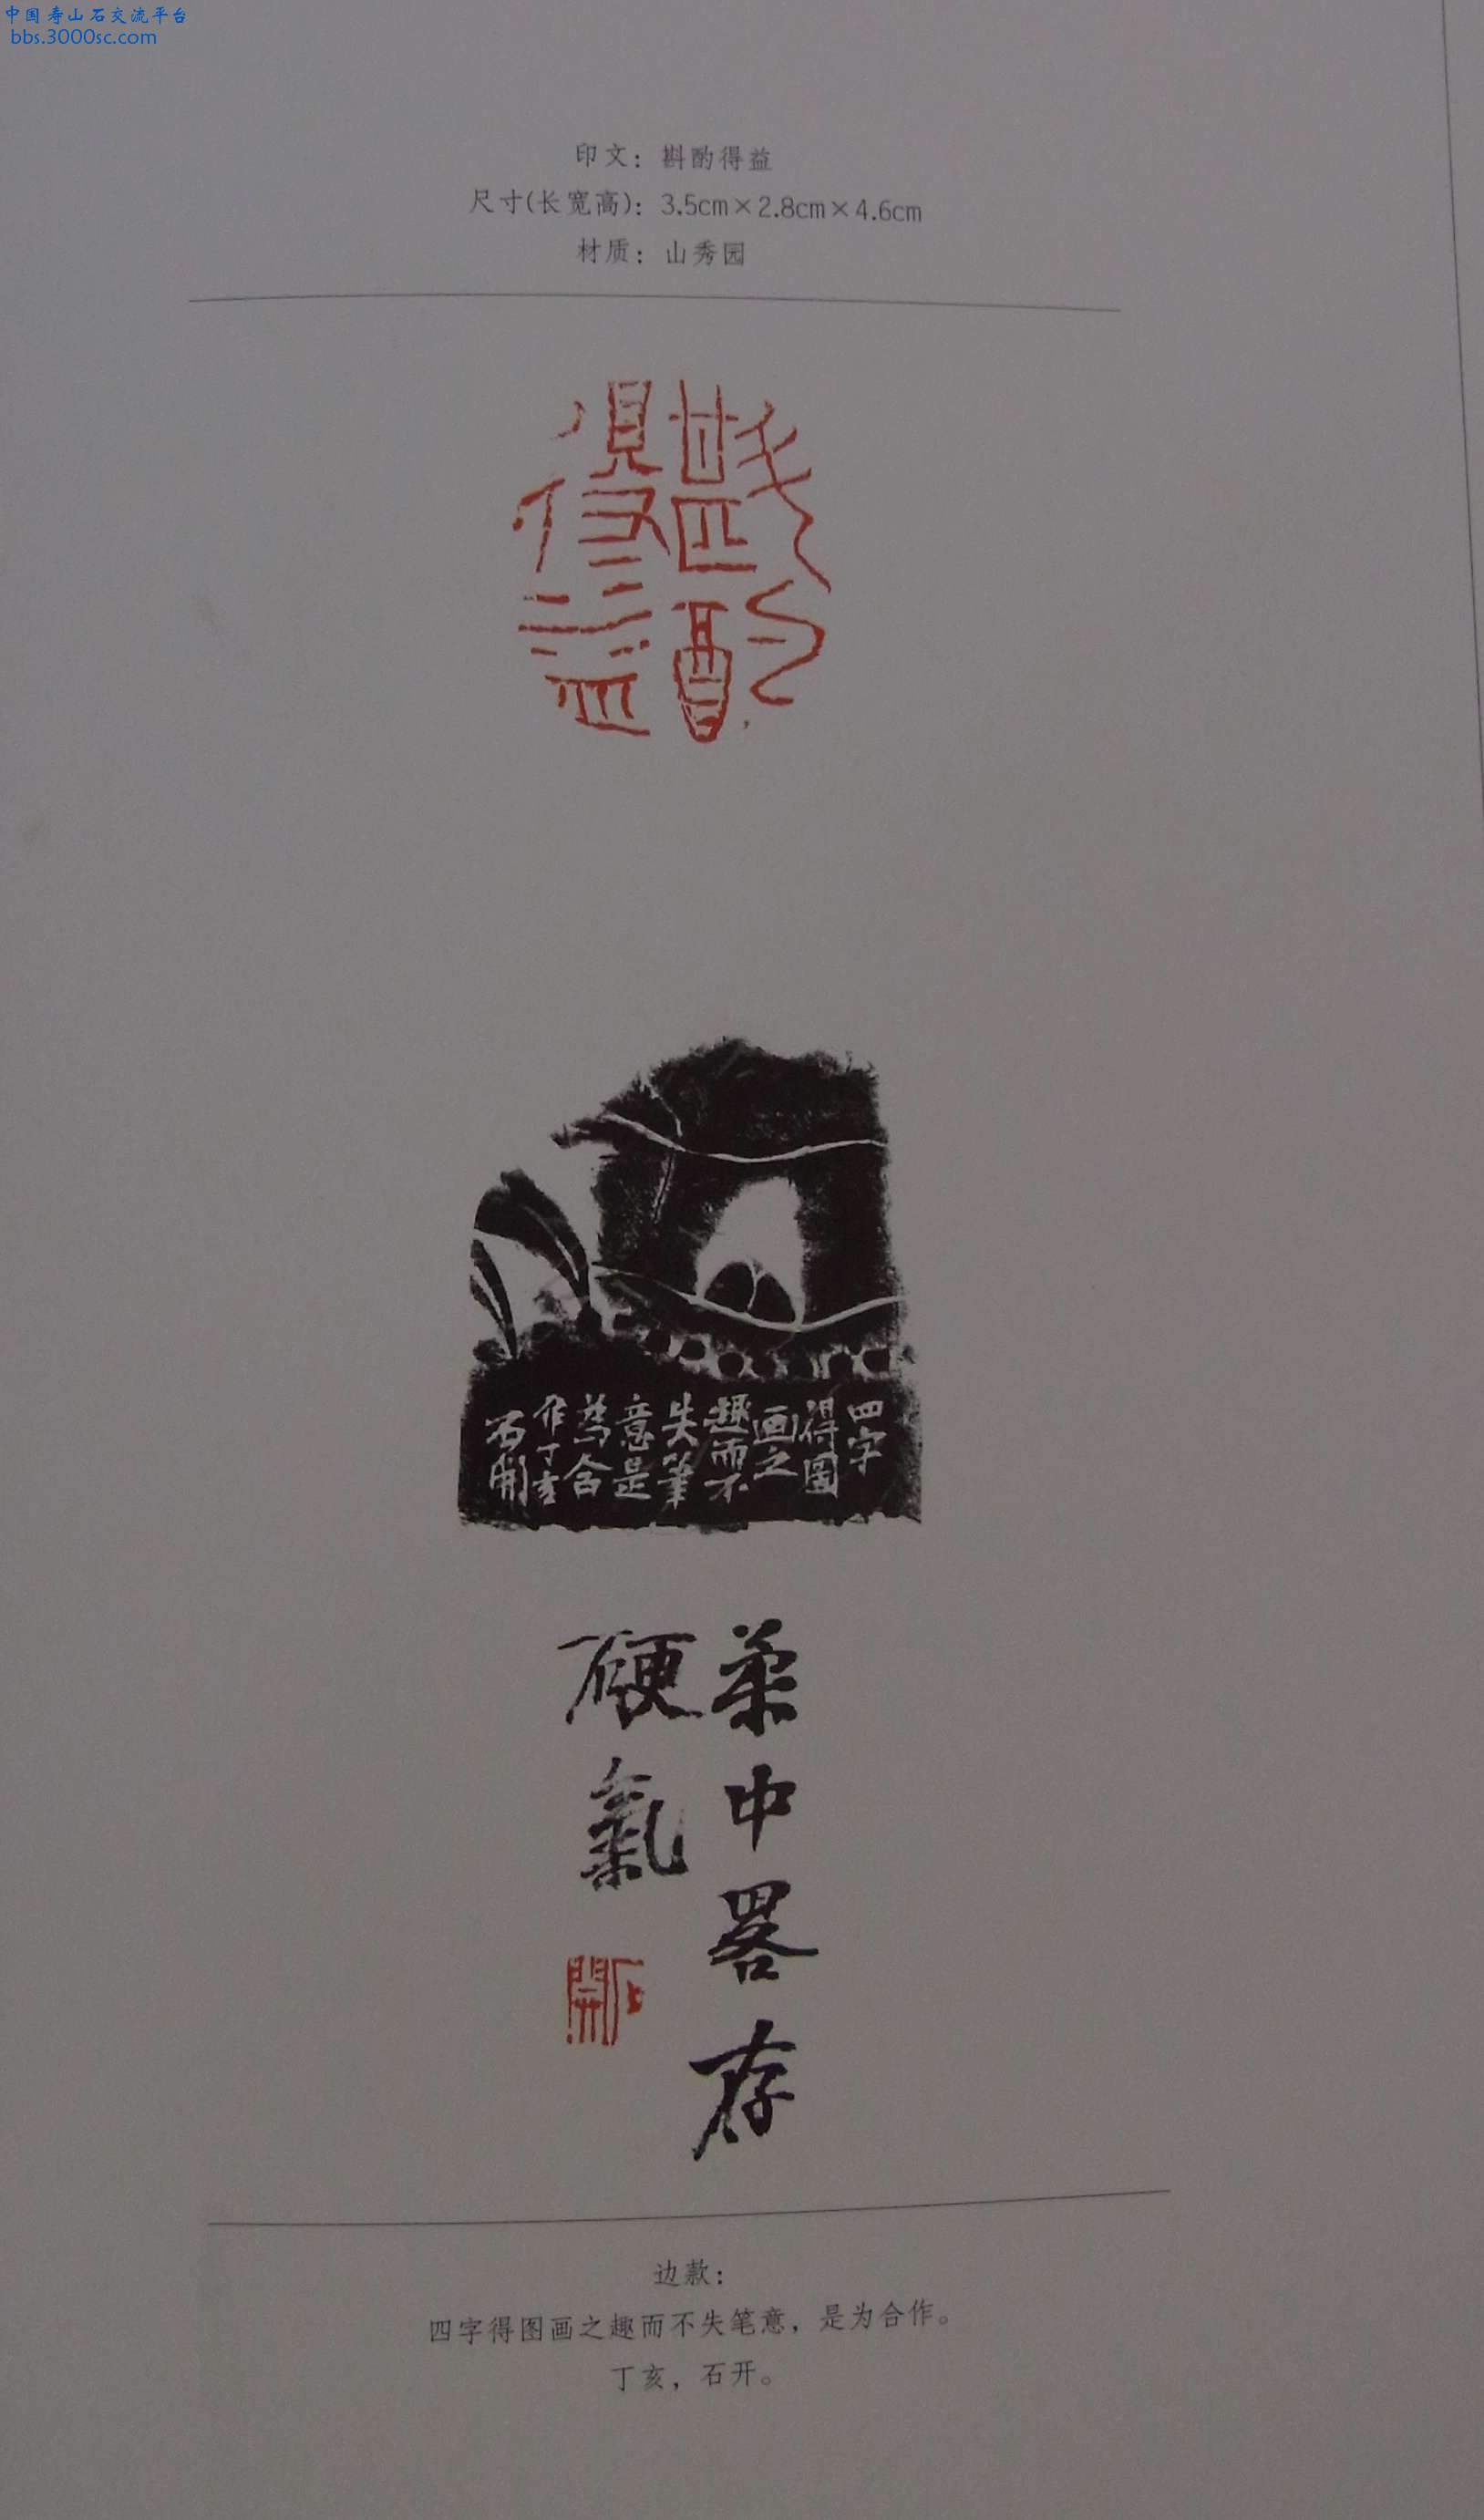 中国寿山石交流平台
bbs.3000sc.com
印文：斟酌得益
尺寸(长宽高)：3.5cm×2.8cm×4.6cm
材质：山秀园
斟酌
得益
四字
得圖
画之
趣而不
失筆
意是
為合
作丁亥
石開
柔中畧存
硬氣
石開
边款：
四字得图画之趣而不失笔意，是为合作。
丁亥，石开。